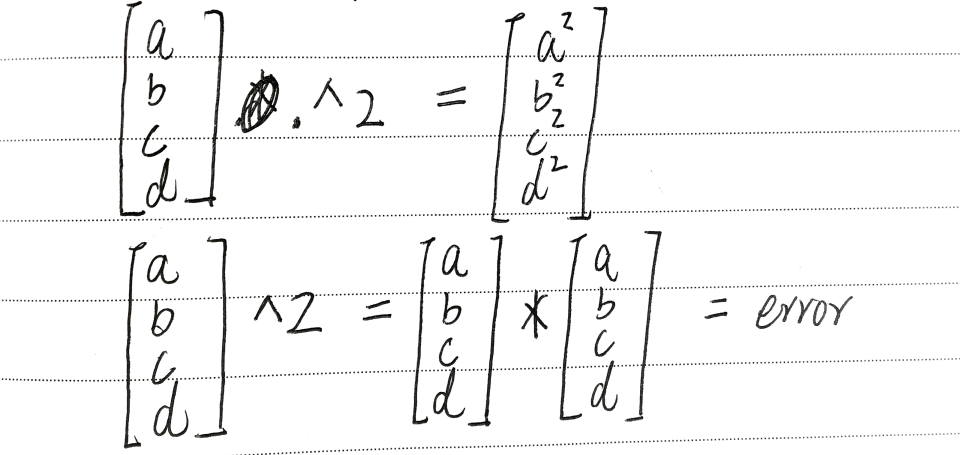 [a b c d] .^2 = [a² b² c² d²]
[a b c d] ^2 = [a b c d] * [a b c d] = error